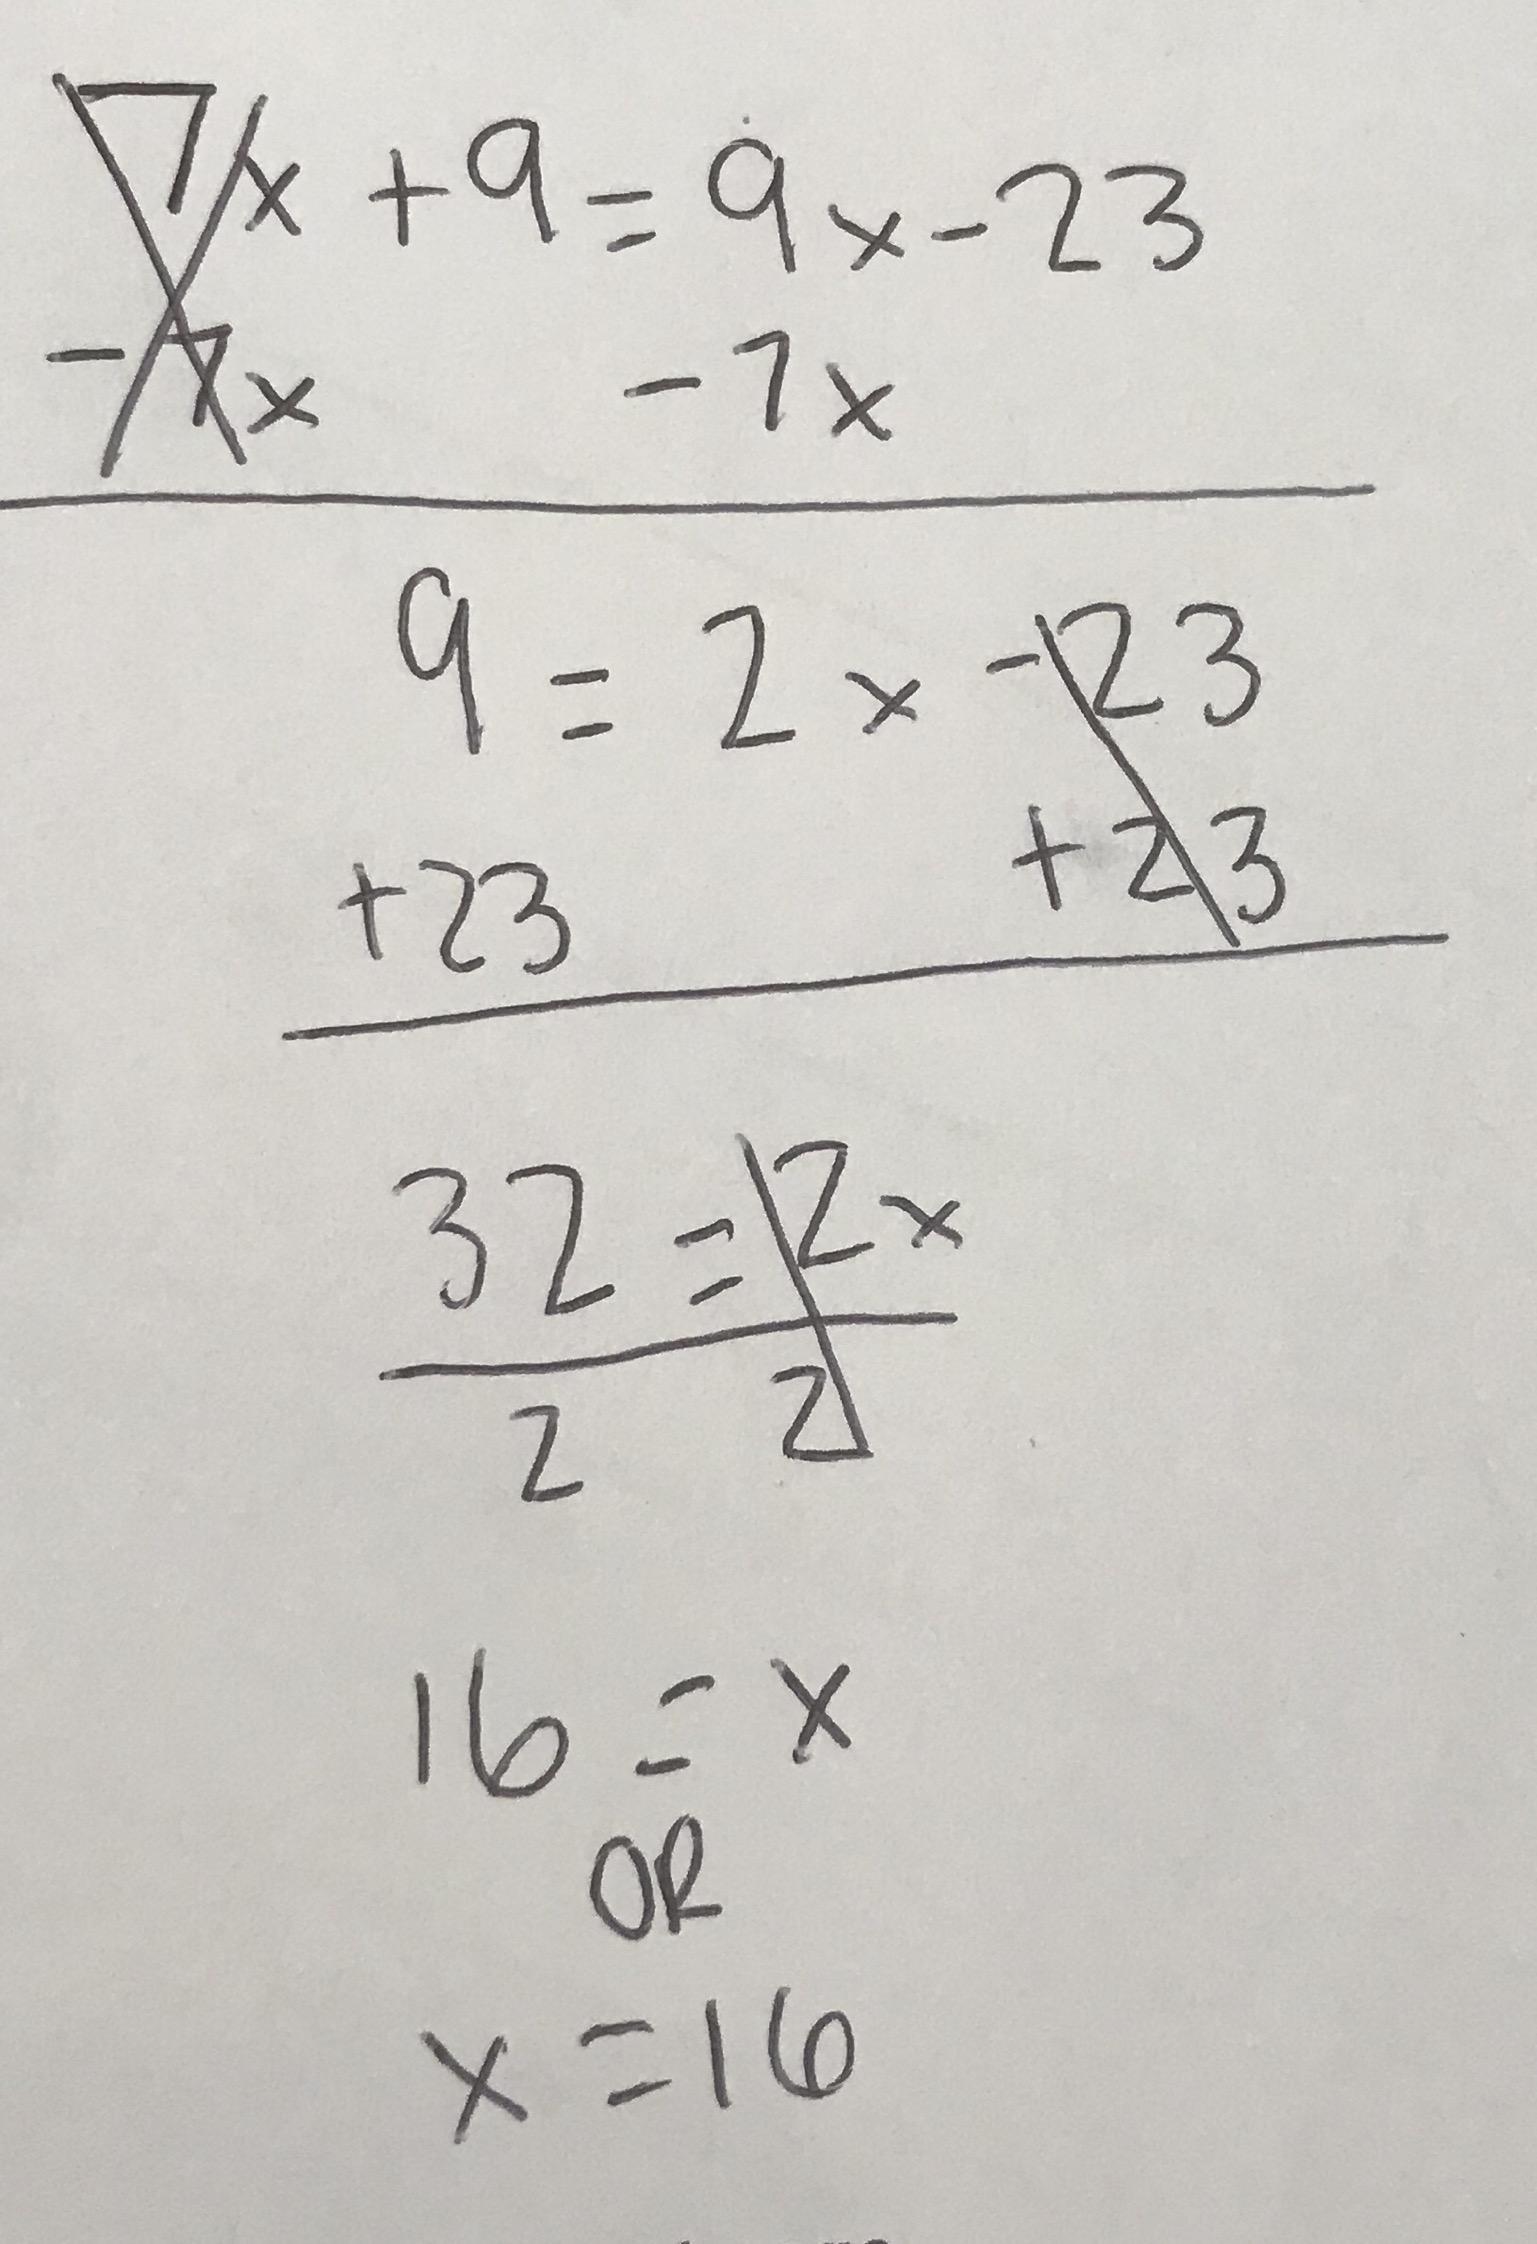 7x + 9 = 9x - 23
- 7x - 7x
9 = 2x - 23
+23 + 23
32 = 2x
2 2
16 = x
OR
x = 16